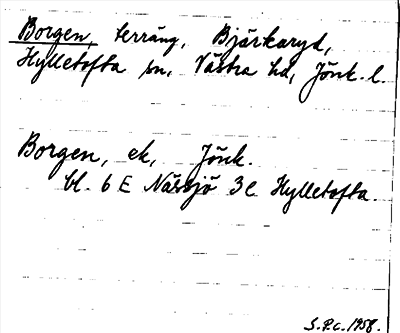 Borgen, terräng, Bjärkaryd,
Hylletofta sn, Västra hd, Jönk. l.
Borgen, ek, Jönk.
bl. 6 E Nässjö 3 e Hylletofta.
S.P.c. 1958.